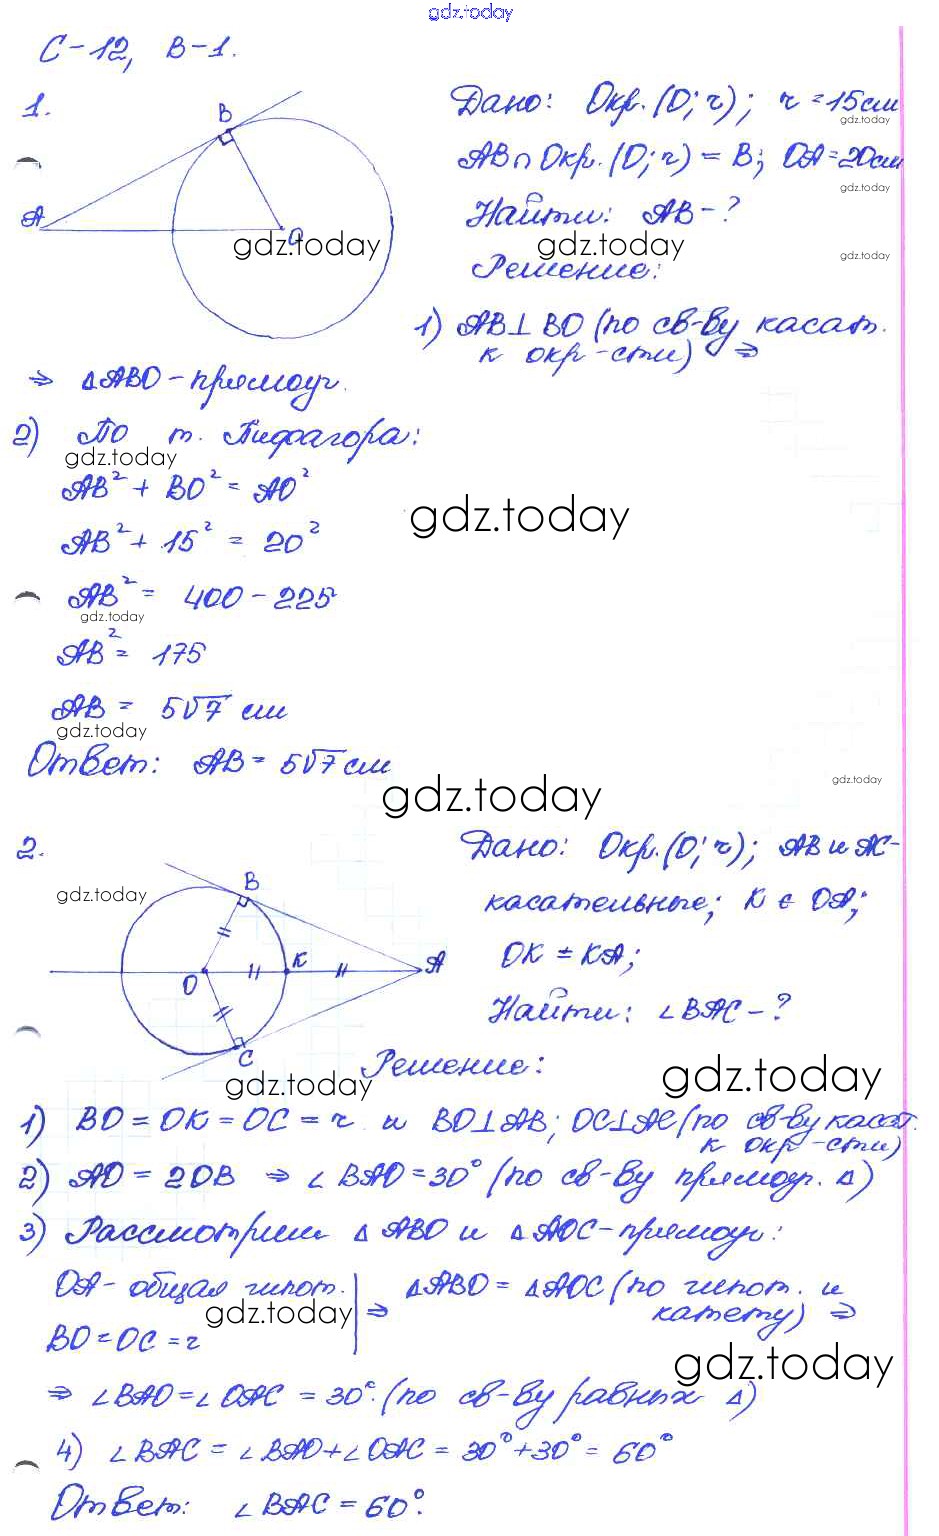 gdz.today
С-12, В-1.
1.
B
A
O
gdz.today
Дано: Окр.(O;r); r=15см
gdz.today
AB∩Окр.(O;r)=B; OA=20см
gdz.today
Найти: AB-?
gdz.today
Решение:
gdz.today
1) AB⊥BO (по св-ву касат.
к окр-сти) ⇒
⇒ ΔABO-прямоуг.
2) По т. Пифагора:
gdz.today
AB²+BO²=AO²
gdz.today
AB²+15²=20²
AB²=400-225
gdz.today
AB²=175
AB=5√7 см
gdz.today
Ответ: AB=5√7 см
gdz.today
gdz.today
2.
B
K
A
O
C
gdz.today
gdz.today
Дано: Окр.(O;r); AB и AC-
касательные; K∈OA;
OK=KA;
Найти: ∠BAC-?
Решение:
gdz.today
1) BO=OK=OC=r и BO⊥AB; OC⊥AC (по св-ву касат.
к окр-сти)
2) AO=2OB ⇒ ∠BAO=30° (по св-ву прямоуг. Δ)
3) Рассмотрим ΔABO и ΔAOC-прямоуг.:
OA-общая гипот. | ⇒ ΔABO=ΔAOC (по гипот. и
gdz.today
катету) ⇒
BO=OC=r
gdz.today
⇒ ∠BAO=∠OAC=30°. (по св-ву равных Δ)
4) ∠BAC=∠BAO+∠OAC=30°+30°=60°
Ответ: ∠BAC=60°.